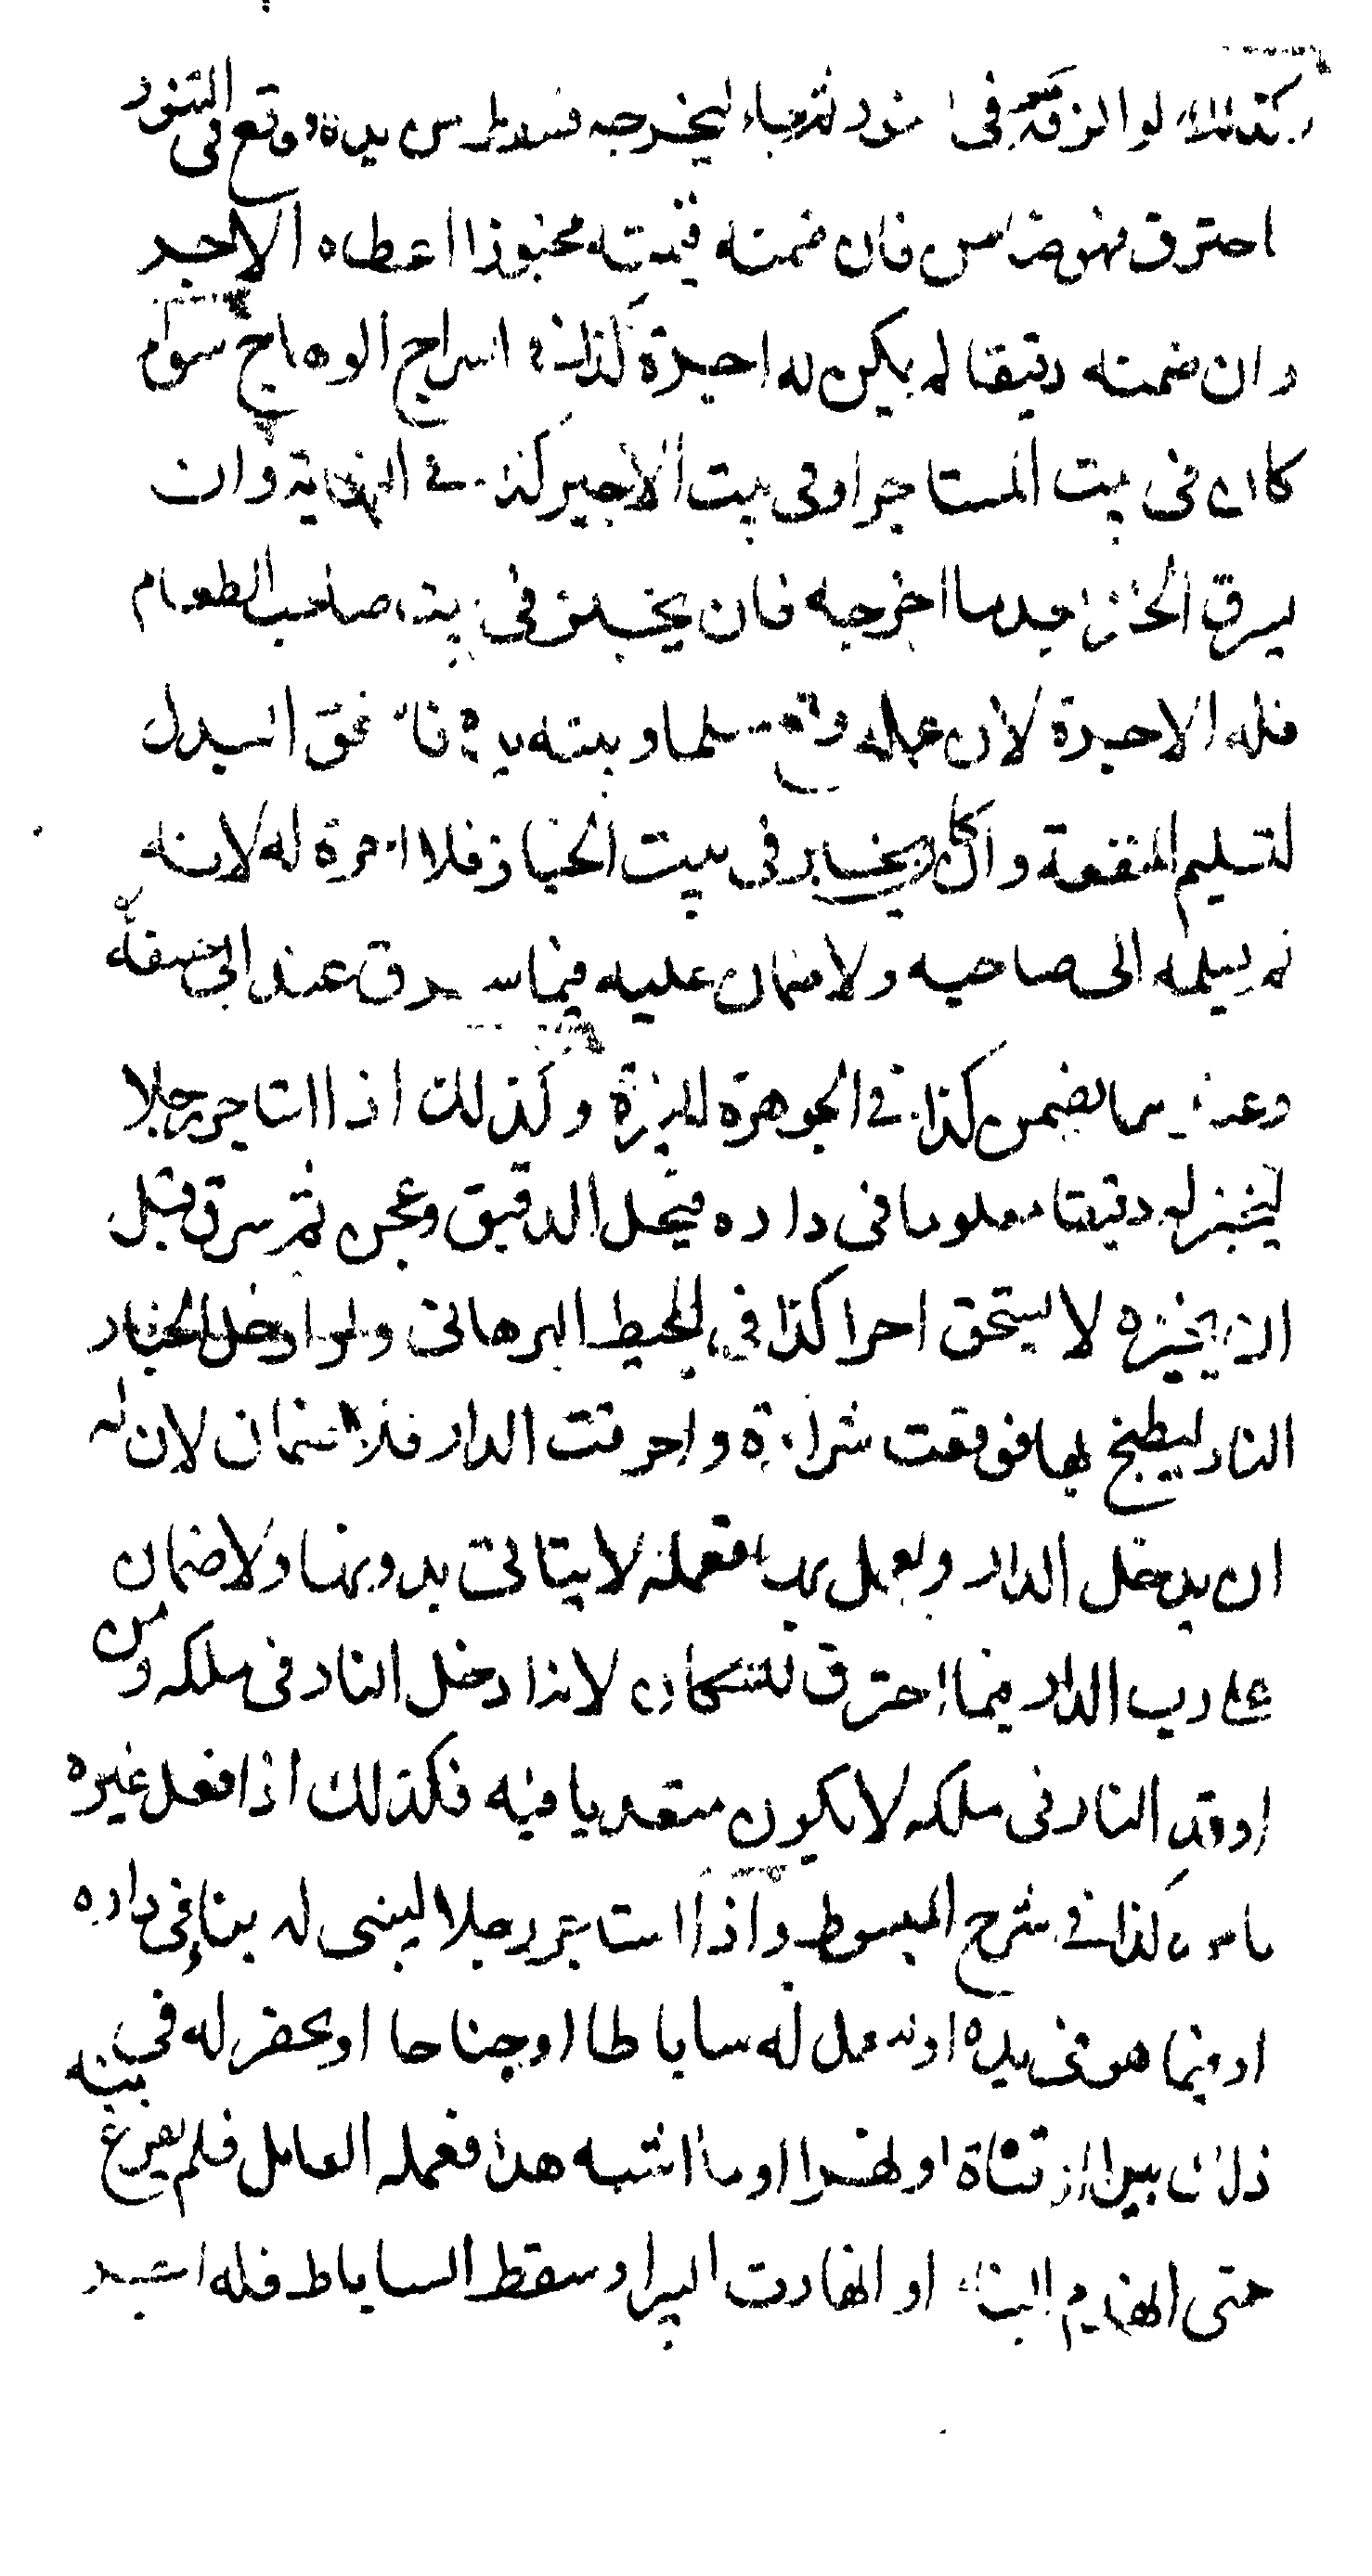 وكذلك لو الزقه في التنور ثم جاء ليخرجه فسقط من يده ووقع في التنور
احترق فهو ضامن فان ضمنه قيمته مخبوزا اعطاه الاجر
وان ضمنه دقيقا لم يكن له اجرة كذا في السراج الوهاج سواء
كان في بيت المستاجر او في بيت الاجير كذا في النهاية وان
سرق الخبز بعد ما اخرجه فان يخبز في بيت صاحب الطعام
فله الاجرة لان عمله وقع سلما وبيته يده فاستحق البدل
لتسليم المنفعة وان كان يخبز في بيت الخباز فلا اجرة له لانه
لم يسلمه الى صاحبه ولا ضمان عليه فيما سرق عند ابى حنيفة
وعندهما يضمن كذا في الجوهرة النيرة وكذلك اذا استاجر رجلا
ليخبز له دقيقا معلوما في داره فنخل الدقيق وعجن ثم سرق قبل
ان يخبزه لا يستحق اجرا كذا في المحيط البرهانى ولو ادخل الخباز
النار ليطبخ بها فوقعت شرارة واحرقت الدار فلا ضمان لان له
ان يدخل الدار ويعمل بها فعمله لا يتاتى بدونها ولا ضمان
على رب الدار فيما احترق للسكان لانه ادخل النار في ملكه ومن
اوقد النار في ملكه لا يكون متعديا فيه فكذلك اذا فعل غيره
بامره كذا في شرح المبسوط واذا استاجر رجلا ليبنى له بناء في داره
او فيما هو في يده او يعمل له ساباطا او جناحا او يحفر له في
ذلك بيرا او قناة او نهرا او ما اشبه هذا فعمله العامل فلم يفرغ
حتى انهدم البناء او انهارت البير او سقط الساباط فله اجر